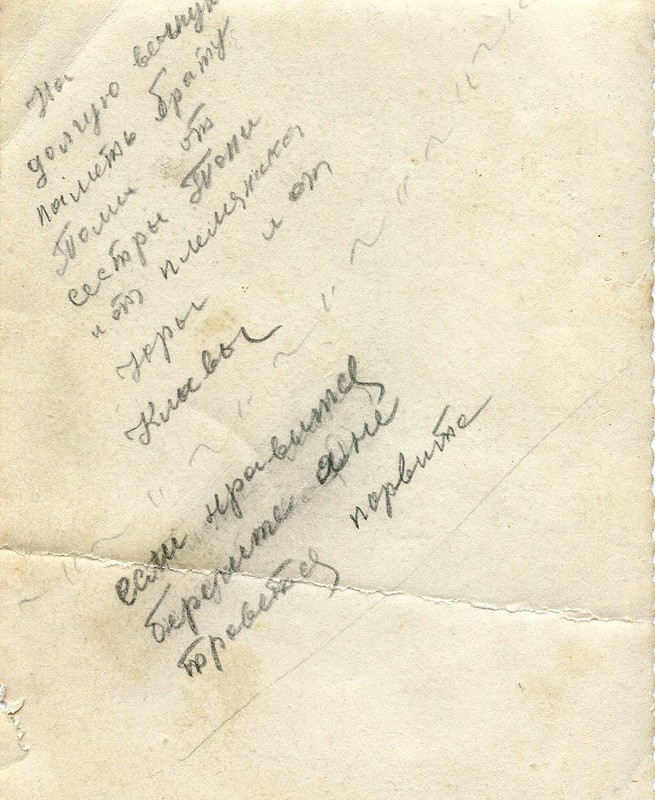 На
долгую вечную
паметь брату
Толи от
сестры Топи
и от племяника
Юры и от
Клавы
если нравитса
берегите а не
травется порвите